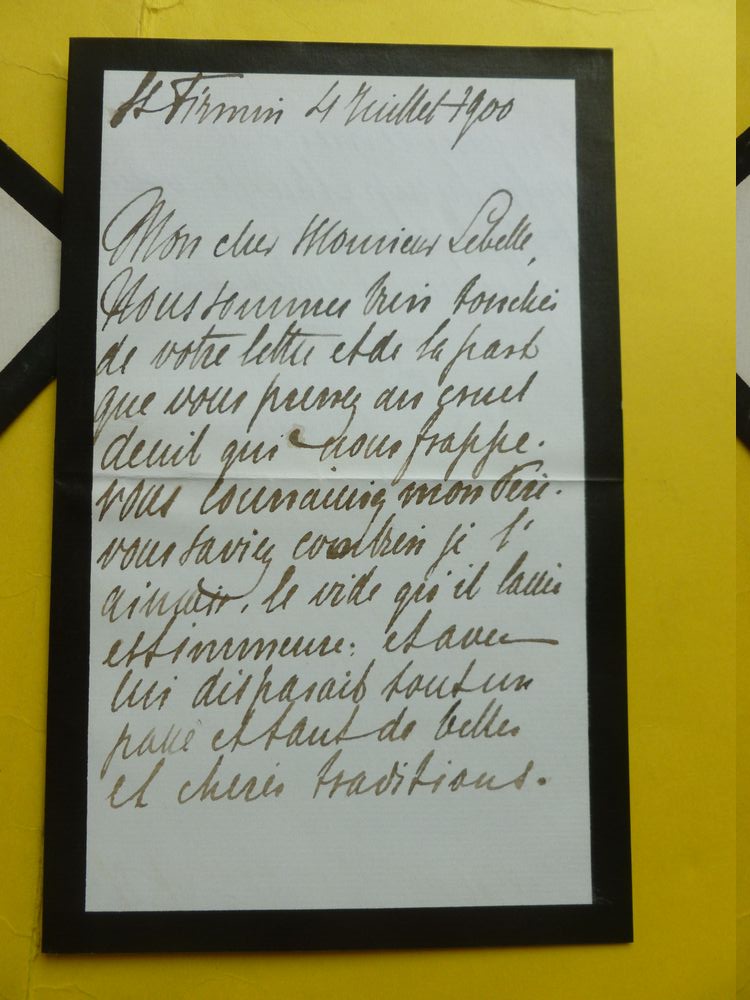 St Firmin 4 Juillet 1900
Mon cher Monsieur Lebelle,
Nous sommes bien touchés
de votre lettre et de la part
que vous prenez au cruel
deuil qui nous frappe.
vous connaissiez mon Père.
vous saviez combien je l'
aimais. le vide qu'il laisse
est immense: et avec
lui disparait tout un
passé et tant de belles
et cheres traditions.